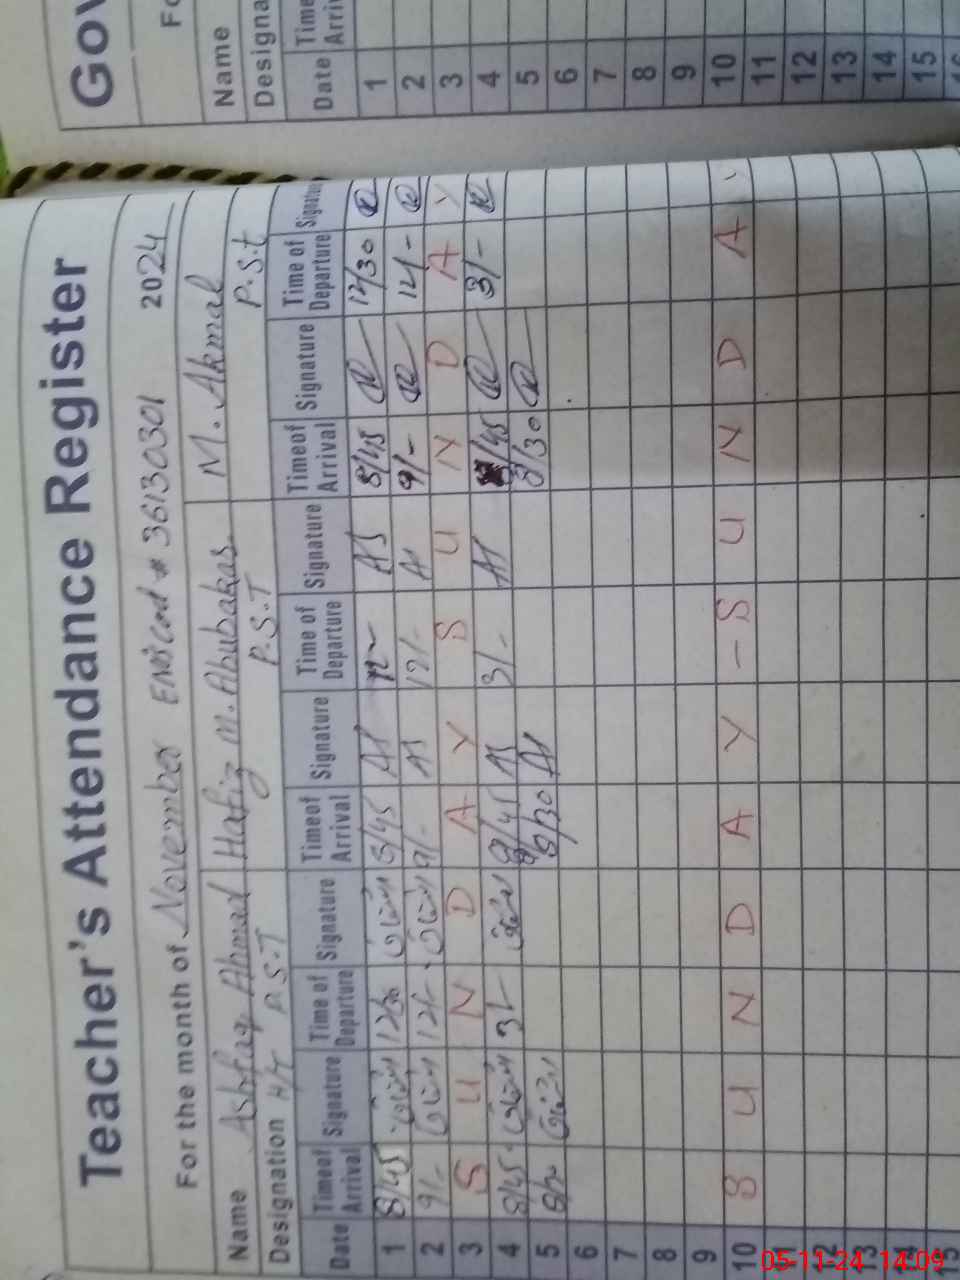 Teacher's Attendance Register
For the month of November EMIS cod # 36130301 2024
Name Ashfaq Ahmad Hafiz M. Abubakar M. Akmal
Designation H/T P.S.T P.S.T P.S.t
Date Time of Arrival Signature Time of Departure Signature Time of Arrival Signature Time of Departure Signature Time of Arrival Signature Time of Departure Signature
1 8/45 12/30 8/45 AS 12 AS 8/45 12/30
2 9/- 12/- 9/- AS 12/- AS 9/- 12/-
3 S U N D A Y S U N D A Y
4 8/45 3/- 8/45 AS 3/- AS 8/45 3/-
5 8/30 AS 8/30
6
7
8
9
10 S U N D A Y - S U N D A Y
11
12
13
14
15
Gov
Fo
Name
Designa
Date Time Arri
1
2
3
4
5
6
7
8
9
10
11
12
13
14
15
05-11-24 14:09